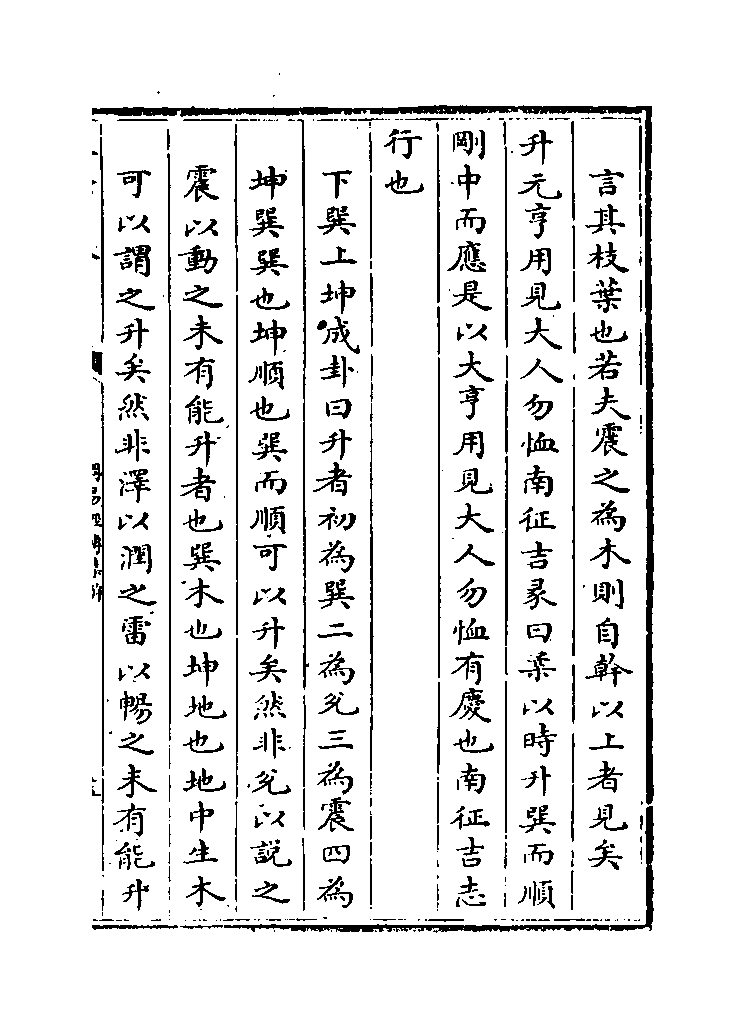 言其枝葉也若夫震之為木則自幹以上者見矣
升元亨用見大人勿恤南征吉彖曰柔以時升巽而順
剛中而應是以大亨用見大人勿恤有慶也南征吉志
行也
下巽上坤成卦曰升者初為巽二為兊三為震四為
坤巽巽也坤順也巽而順可以升矣然非兊以說之
震以動之未有能升者也巽木也坤地也地中生木
可以謂之升矣然非澤以潤之雷以暢之未有能升